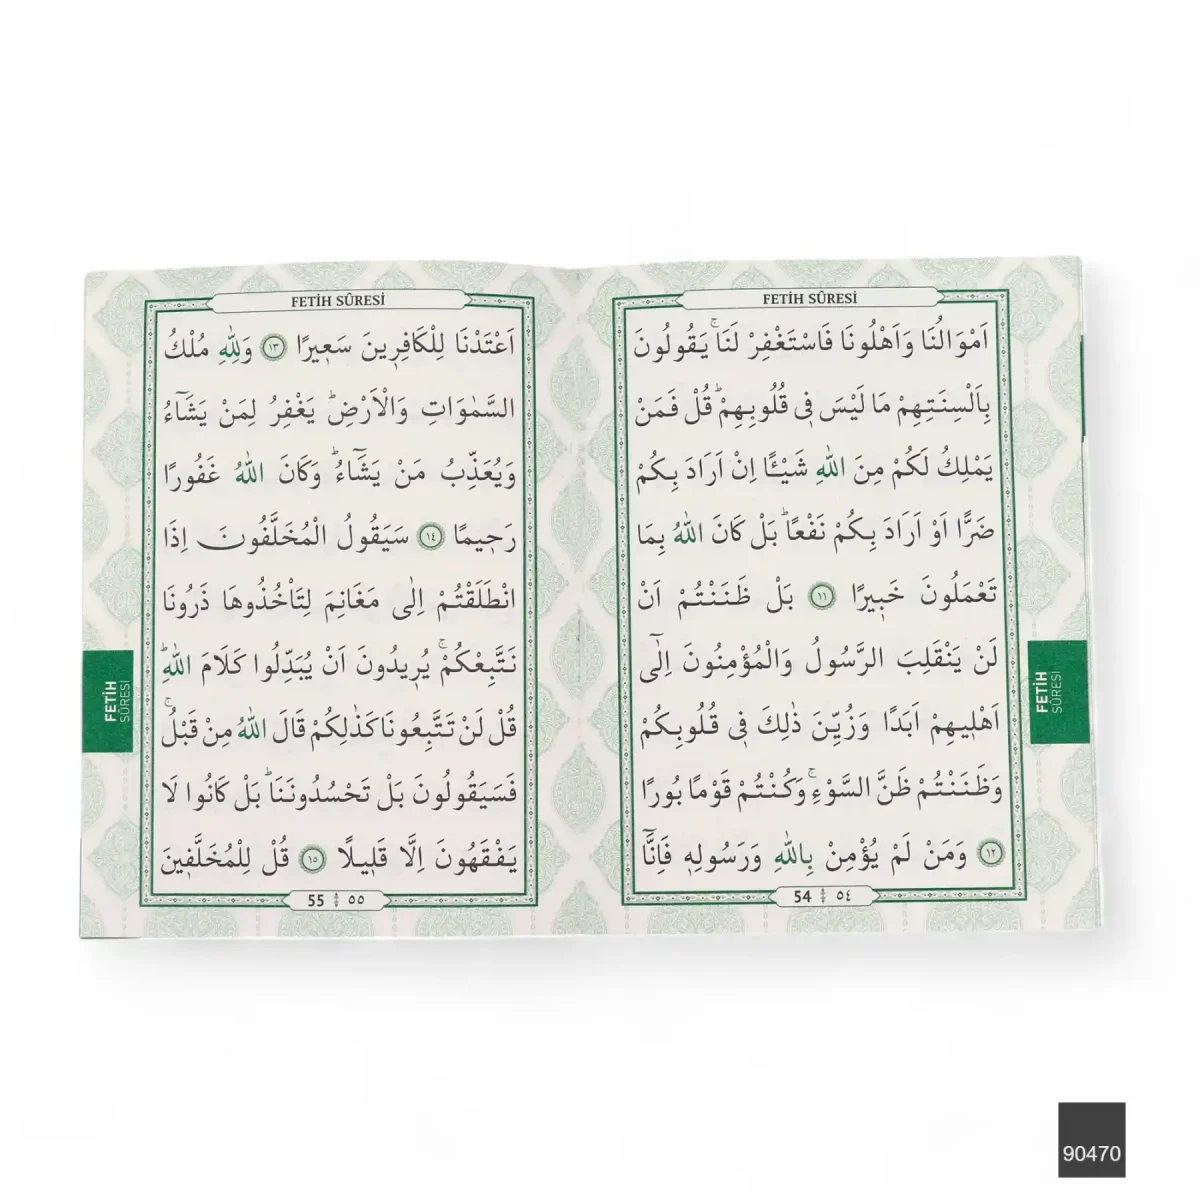 FETİH SÛRESİ
اَمْوَالُنَا وَاَهْلُونَا فَاسْتَغْفِرْ لَنَاۚ يَقُولُونَ
بِاَلْسِنَتِهِمْ مَا لَيْسَ ف۪ي قُلُوبِهِمْۜ قُلْ فَمَنْ
يَمْلِكُ لَكُمْ مِنَ اللّٰهِ شَيْـًٔا اِنْ اَرَادَ بِكُمْ
ضَرًّا اَوْ اَرَادَ بِكُمْ نَفْعًاۜ بَلْ كَانَ اللّٰهُ بِمَا
تَعْمَلُونَ خَب۪يرًا ﴿١١﴾ بَلْ ظَنَنْتُمْ اَنْ
لَنْ يَنْقَلِبَ الرَّسُولُ وَالْمُؤْمِنُونَ اِلٰٓى
اَهْل۪يهِمْ اَبَدًا وَزُيِّنَ ذٰلِكَ ف۪ي قُلُوبِكُمْ
وَظَنَنْتُمْ ظَنَّ السَّوْءِۚ وَكُنْتُمْ قَوْمًا بُورًا
﴿١٢﴾ وَمَنْ لَمْ يُؤْمِنْ بِاللّٰهِ وَرَسُولِه۪ فَاِنَّٓا
54 ٥٤
FETİH
SÛRESİ
FETİH SÛRESİ
اَعْتَدْنَا لِلْكَافِر۪ينَ سَع۪يرًا ﴿١٣﴾ وَلِلّٰهِ مُلْكُ
السَّمٰوَاتِ وَالْاَرْضِۜ يَغْفِرُ لِمَنْ يَشَٓاءُ
وَيُعَذِّبُ مَنْ يَشَٓاءُۜ وَكَانَ اللّٰهُ غَفُورًا
رَح۪يمًا ﴿١٤﴾ سَيَقُولُ الْمُخَلَّفُونَ اِذَا
انْطَلَقْتُمْ اِلٰى مَغَانِمَ لِتَأْخُذُوهَا ذَرُونَا
نَتَّبِعْكُمْۚ يُر۪يدُونَ اَنْ يُبَدِّلُوا كَلَامَ اللّٰهِۜ
قُلْ لَنْ تَتَّبِعُونَا كَذٰلِكُمْ قَالَ اللّٰهُ مِنْ قَبْلُۚ
فَسَيَقُولُونَ بَلْ تَحْسُدُونَنَاۜ بَلْ كَانُوا لَا
يَفْقَهُونَ اِلَّا قَل۪يلًا ﴿١٥﴾ قُلْ لِلْمُخَلَّف۪ينَ
55 ٥٥
FETİH
SÛRESİ
90470